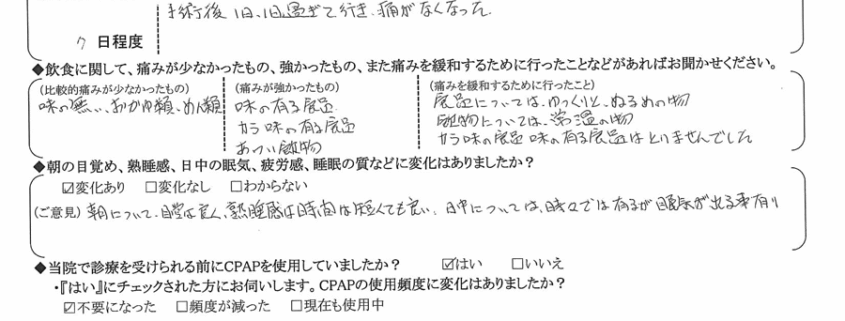 手術後 1日、1日過ぎて行き、痛がなくなった
7 日程度
◆飲食に関して、痛みが少なかったもの、強かったもの、また痛みを緩和するために行ったことなどがあればお聞かせください。
(比較的痛みが少なかったもの) (痛みが強かったもの) (痛みを緩和するために行ったこと)
味の無い、おかゆ類、めん類 味の有る については、ゆっくりと、ぬるめの物
カラ味の有る 飲物については、常温の物
あつい飲物 カラ味の 味の有る はとりませんでした
◆朝の目覚め、熟睡感、日中の眠気、疲労感、睡眠の質などに変化はありましたか？
☑変化あり □変化なし □わからない
(ご意見) 朝について、目覚は良く、熟睡感は時間は短くても良い、日中については、時々では有るが眠気が出る事有り
◆当院で診療を受けられる前にCPAPを使用していましたか？ ☑はい □いいえ
・『はい』にチェックされた方にお伺いします。CPAPの使用頻度に変化はありましたか？
☑不要になった □頻度が減った □現在も使用中